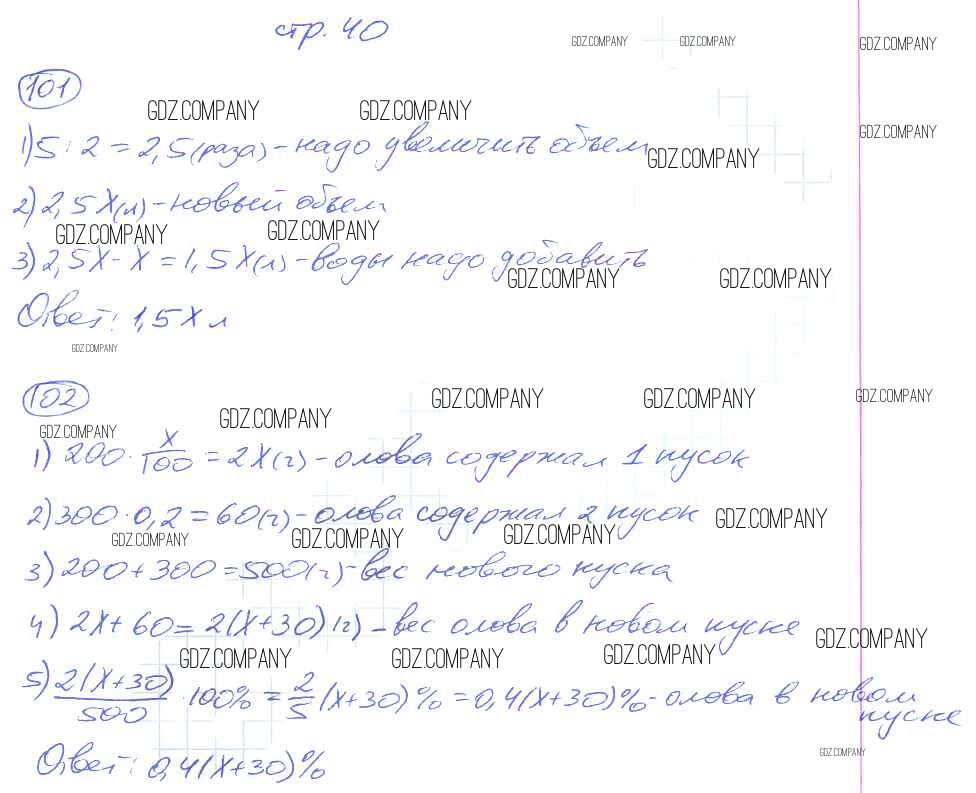 стр. 40
GDZ.COMPANY GDZ.COMPANY GDZ.COMPANY
101
GDZ.COMPANY GDZ.COMPANY GDZ.COMPANY
1) 5 : 2 = 2,5 (раза) - надо увеличить объем
GDZ.COMPANY
2) 2,5x (л) - новый объем
GDZ.COMPANY GDZ.COMPANY
3) 2,5x - x = 1,5x (л) - воды надо добавить
GDZ.COMPANY GDZ.COMPANY
Ответ: 1,5x л
GDZ.COMPANY
102
GDZ.COMPANY GDZ.COMPANY GDZ.COMPANY
GDZ.COMPANY GDZ.COMPANY
1) 200 · x/100 = 2x (г) - олова содержал 1 кусок
2) 300 · 0,2 = 60 (г) - олова содержал 2 кусок
GDZ.COMPANY
GDZ.COMPANY GDZ.COMPANY GDZ.COMPANY
3) 200 + 300 = 500 (г) - вес нового куска
4) 2x + 60 = 2(x + 30) (г) - вес олова в новом куске
GDZ.COMPANY
GDZ.COMPANY GDZ.COMPANY GDZ.COMPANY
5) 2(x+30)/500 · 100% = 2/5 (x+30)% = 0,4(x+30)% - олова в новом
куске
GDZ.COMPANY
Ответ: 0,4(x+30)%